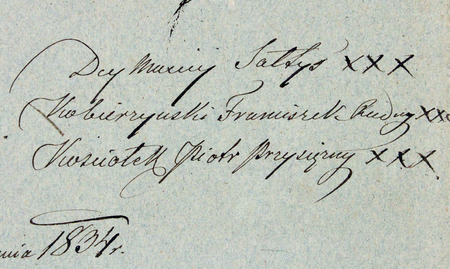 Sołtys xxx
Kobierzynski Franciszek Radny xxx
Kościołek Piotr Przysiężny xxx
nia 1834 r.